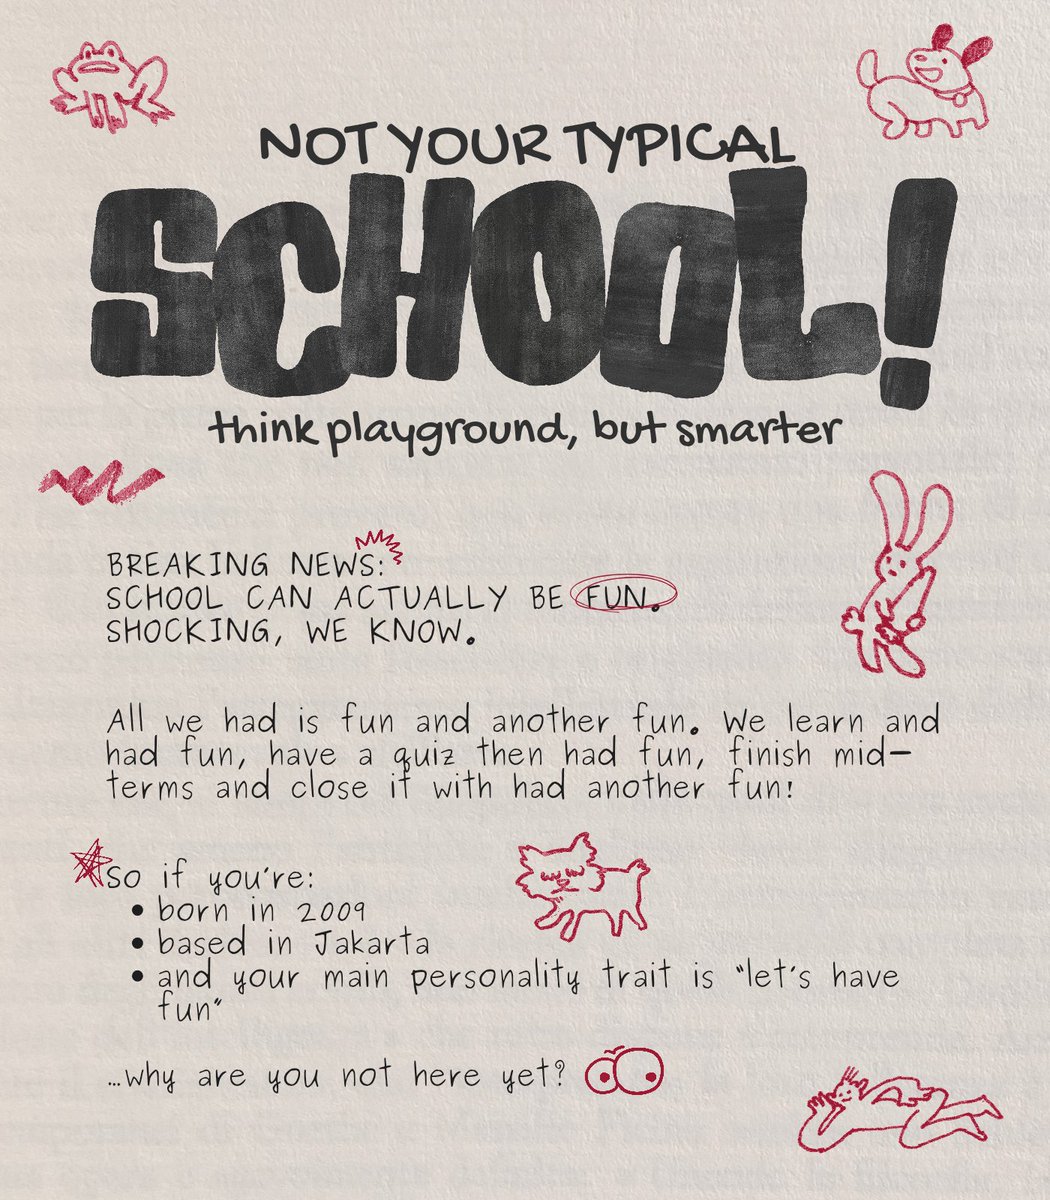 NOT YOUR TYPICAL
SCHOOL!
think playground, but smarter
BREAKING NEWS:
SCHOOL CAN ACTUALLY BE FUN.
SHOCKING, WE KNOW.
All we had is fun and another fun. We learn and
had fun, have a quiz then had fun, finish mid-
terms and close it with had another fun!
So if you're:
• born in 2009
• based in Jakarta
• and your main personality trait is "let's have
fun"
...why are you not here yet?